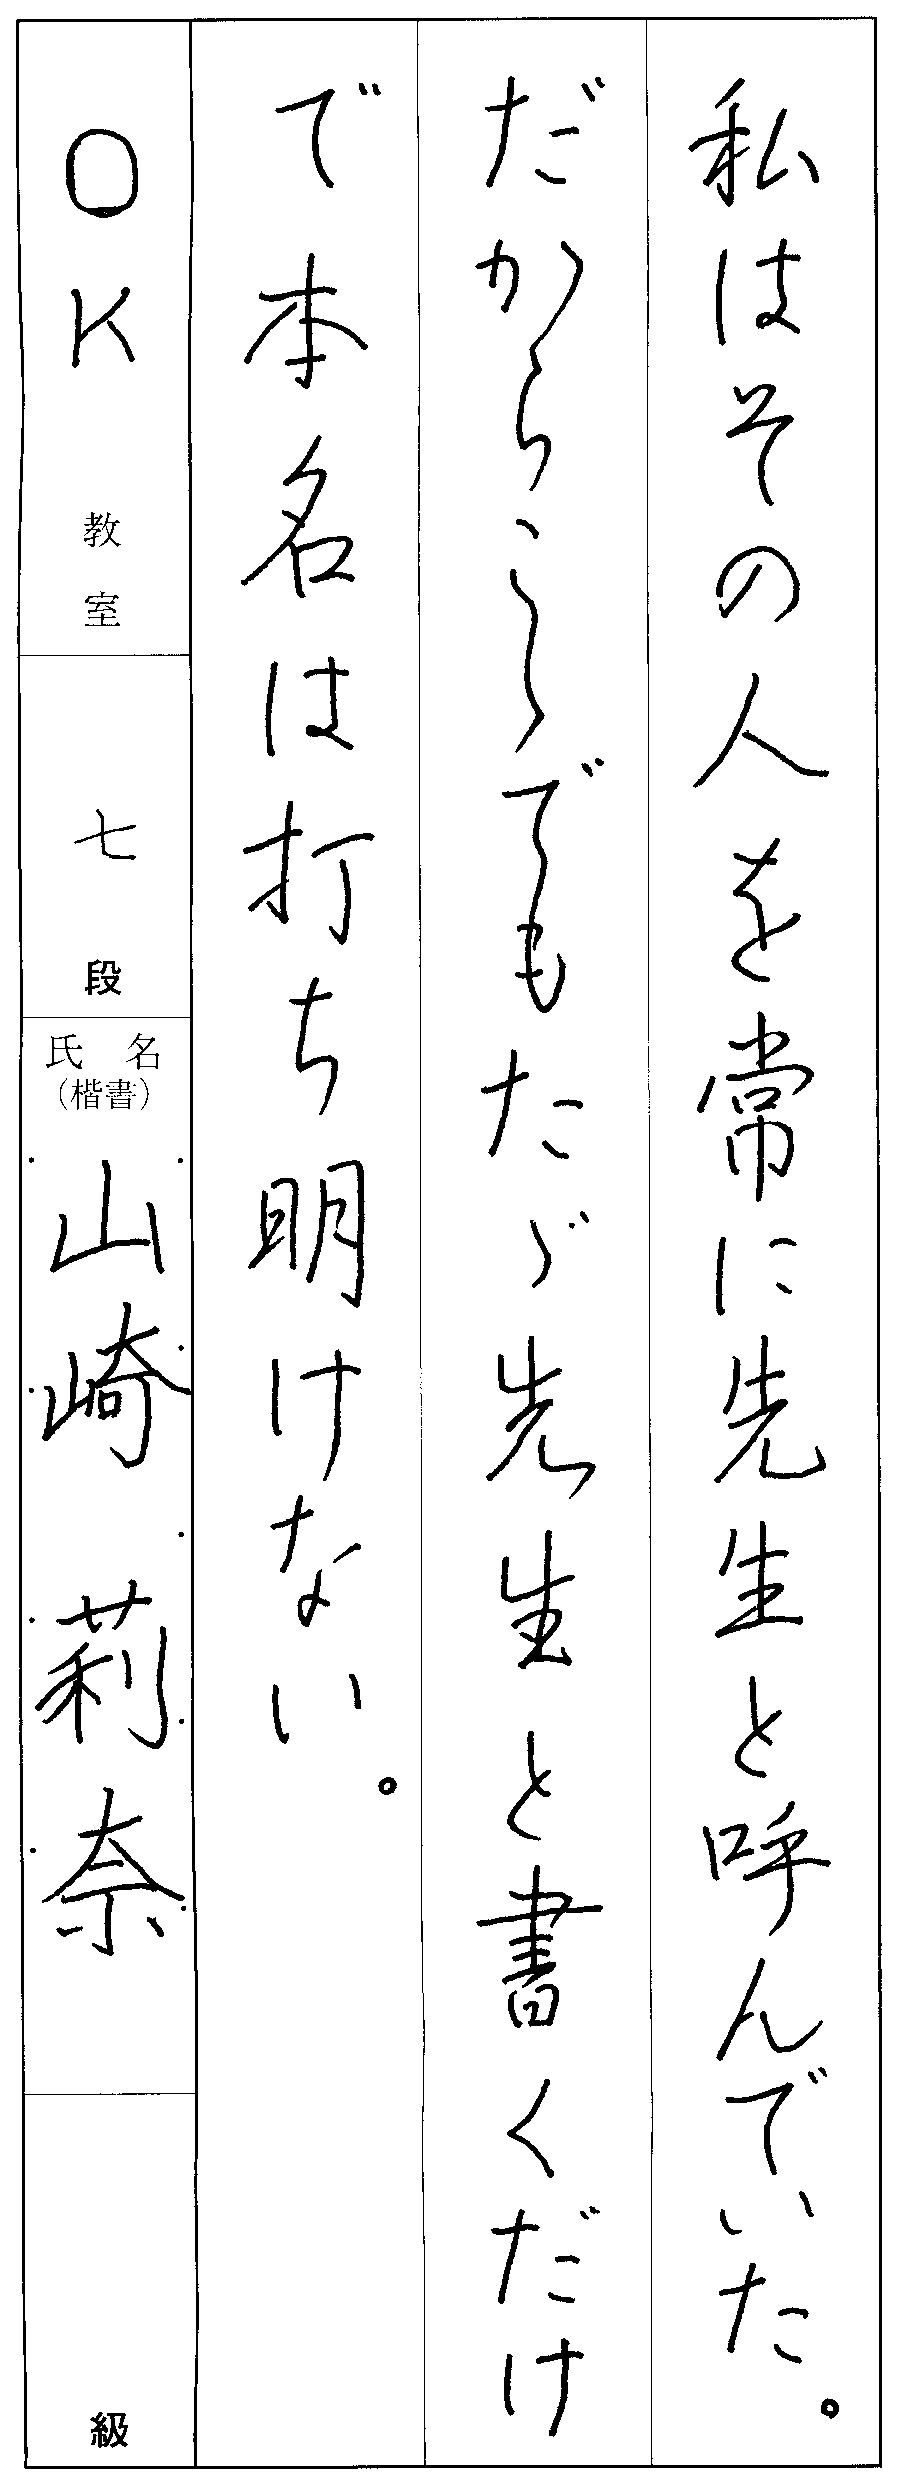 私はその人を常に先生と呼んでいた。
だからこゝでもたゞ先生と書くだけ
で本名は打ち明けない。
OK教室
七段
氏名
(楷書)
山崎莉奈
級